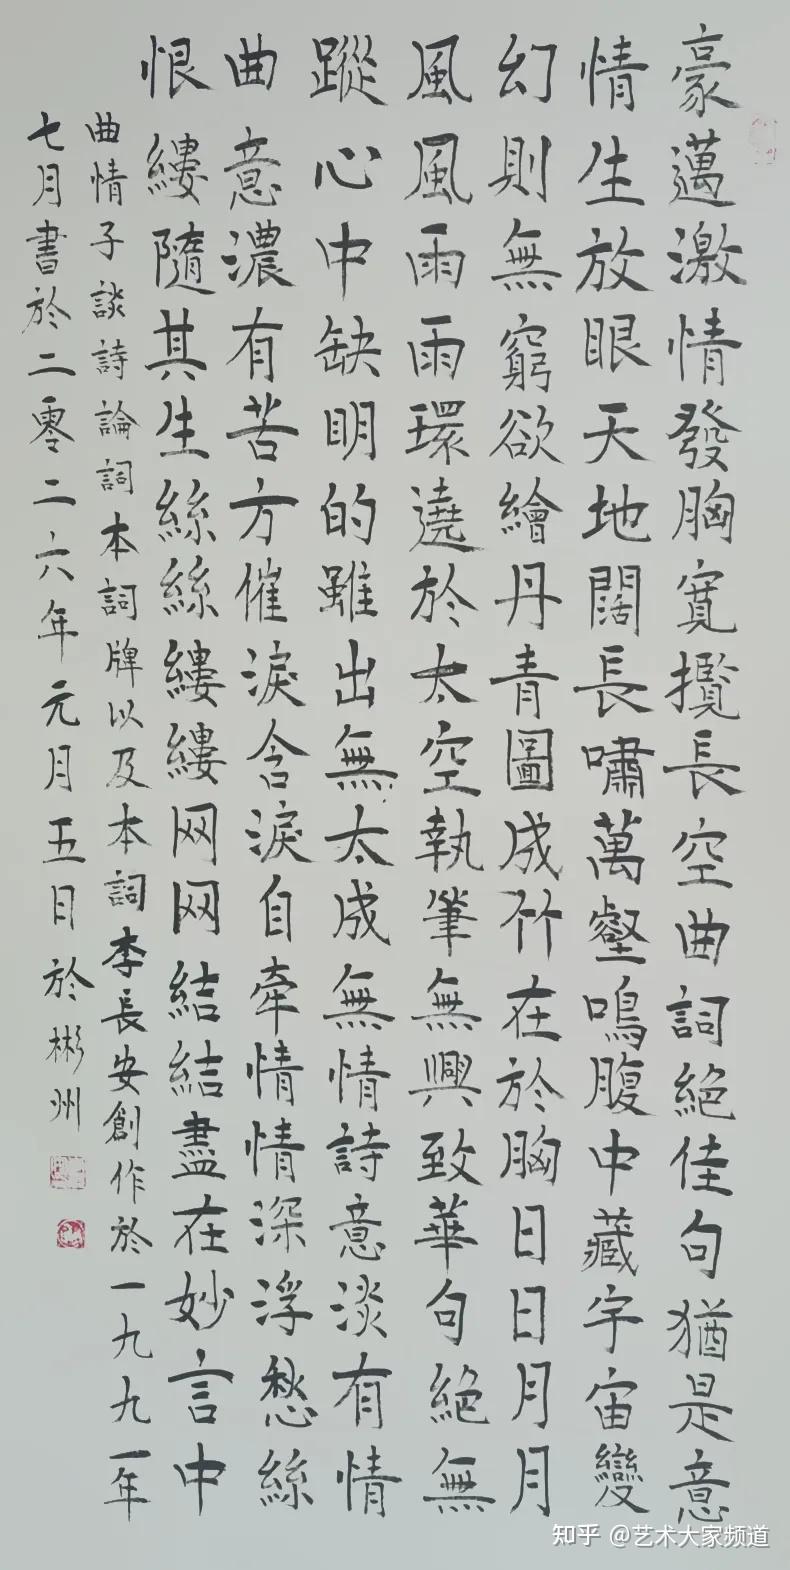 豪邁激情發胸寬攬長空曲詞絕佳句猶是意
情生放眼天地闊長嘯萬壑鳴腹中藏宇宙變
幻則無窮欲繪丹青圖成竹在於胸日日月月
風風雨雨環遶於太空執筆無興致華句絕無
蹤心中缺明的雖出無太成無情詩意淡有情
曲意濃有苦方催淚含淚自牽情情深浮愁絲
恨縷隨其生絲絲縷縷网网結結盡在妙言中
曲情子談詩論詞本詞牌以及本詞李長安創作於一九九一年
七月書於二零二六年元月五日於彬州
知乎 @艺术大家频道